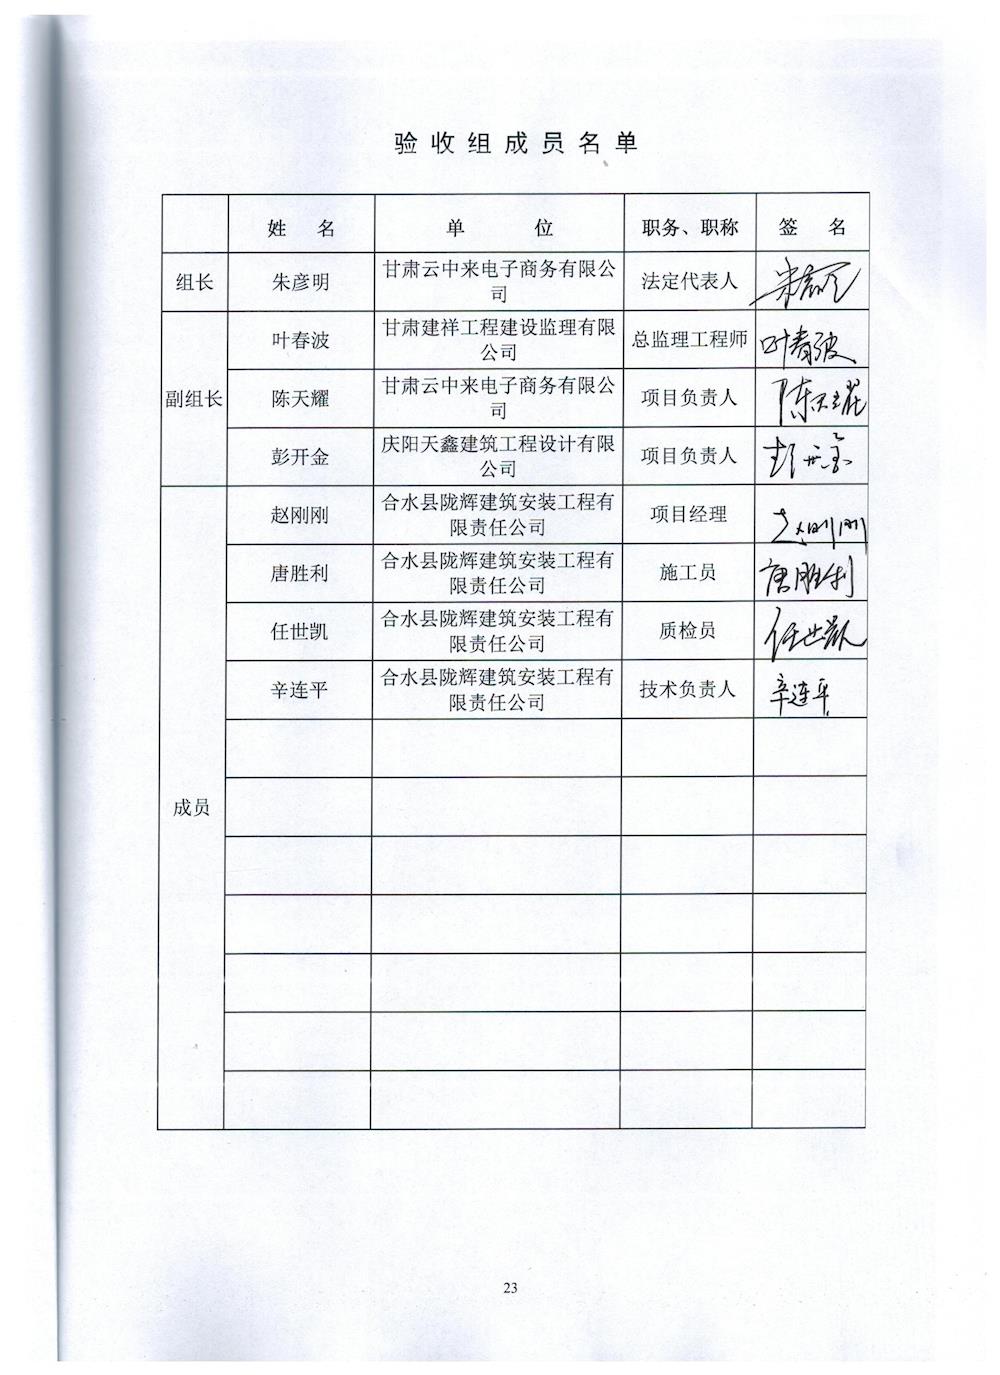 验收组成员名单
姓 名 单 位 职务、职称 签 名
组长 朱彦明 甘肃云中来电子商务有限公
司 法定代表人 朱彦明
副组长 叶春波 甘肃建祥工程建设监理有限
公司 总监理工程师 叶春波
陈天耀 甘肃云中来电子商务有限公
司 项目负责人 陈天耀
彭开金 庆阳天鑫建筑工程设计有限
公司 项目负责人 彭开金
成员 赵刚刚 合水县陇辉建筑安装工程有
限责任公司 项目经理 赵刚刚
唐胜利 合水县陇辉建筑安装工程有
限责任公司 施工员 唐胜利
任世凯 合水县陇辉建筑安装工程有
限责任公司 质检员 任世凯
辛连平 合水县陇辉建筑安装工程有
限责任公司 技术负责人 辛连平
23